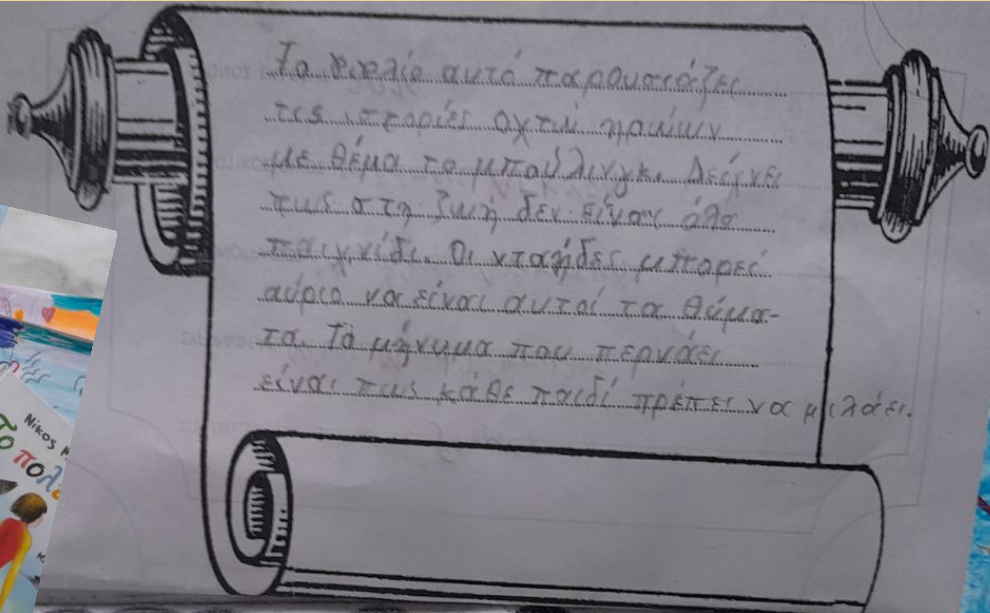 Το βιβλίο αυτό παρουσιάζει
τις ιστορίες οχτώ παιδιών
με θέμα το μπούλινγκ. Δείχνει
πως στη ζωή δεν είναι όλα
παιχνίδι. Οι νταήδες μπορεί
αύριο να είναι αυτοί τα θύμα-
τα. Το μήνυμα που περνάει
είναι πως κάθε παιδί πρέπει να μιλάει.
Νίκος
το πολ